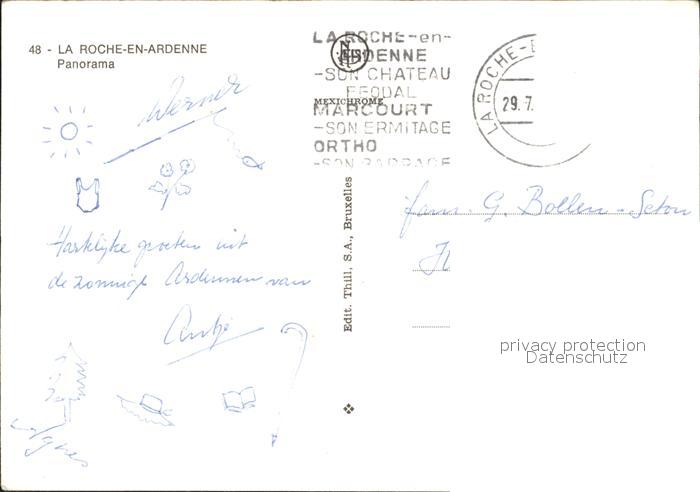 48 - LA ROCHE-EN-ARDENNE
Panorama
Werner
Hartelijke groeten uit
de zonnige Ardennen van
Antje
Agnes
LA ROCHE-en-
ARDENNE
-SON CHATEAU
FEODAL
MEXICHROME
MARCOURT
-SON ERMITAGE
ORTHO
-SON BARRAGE
LA ROCHE-E
29.7.
Edit. Thill, S.A., Bruxelles
fam. G. Bollen-Seton
privacy protection
Datenschutz